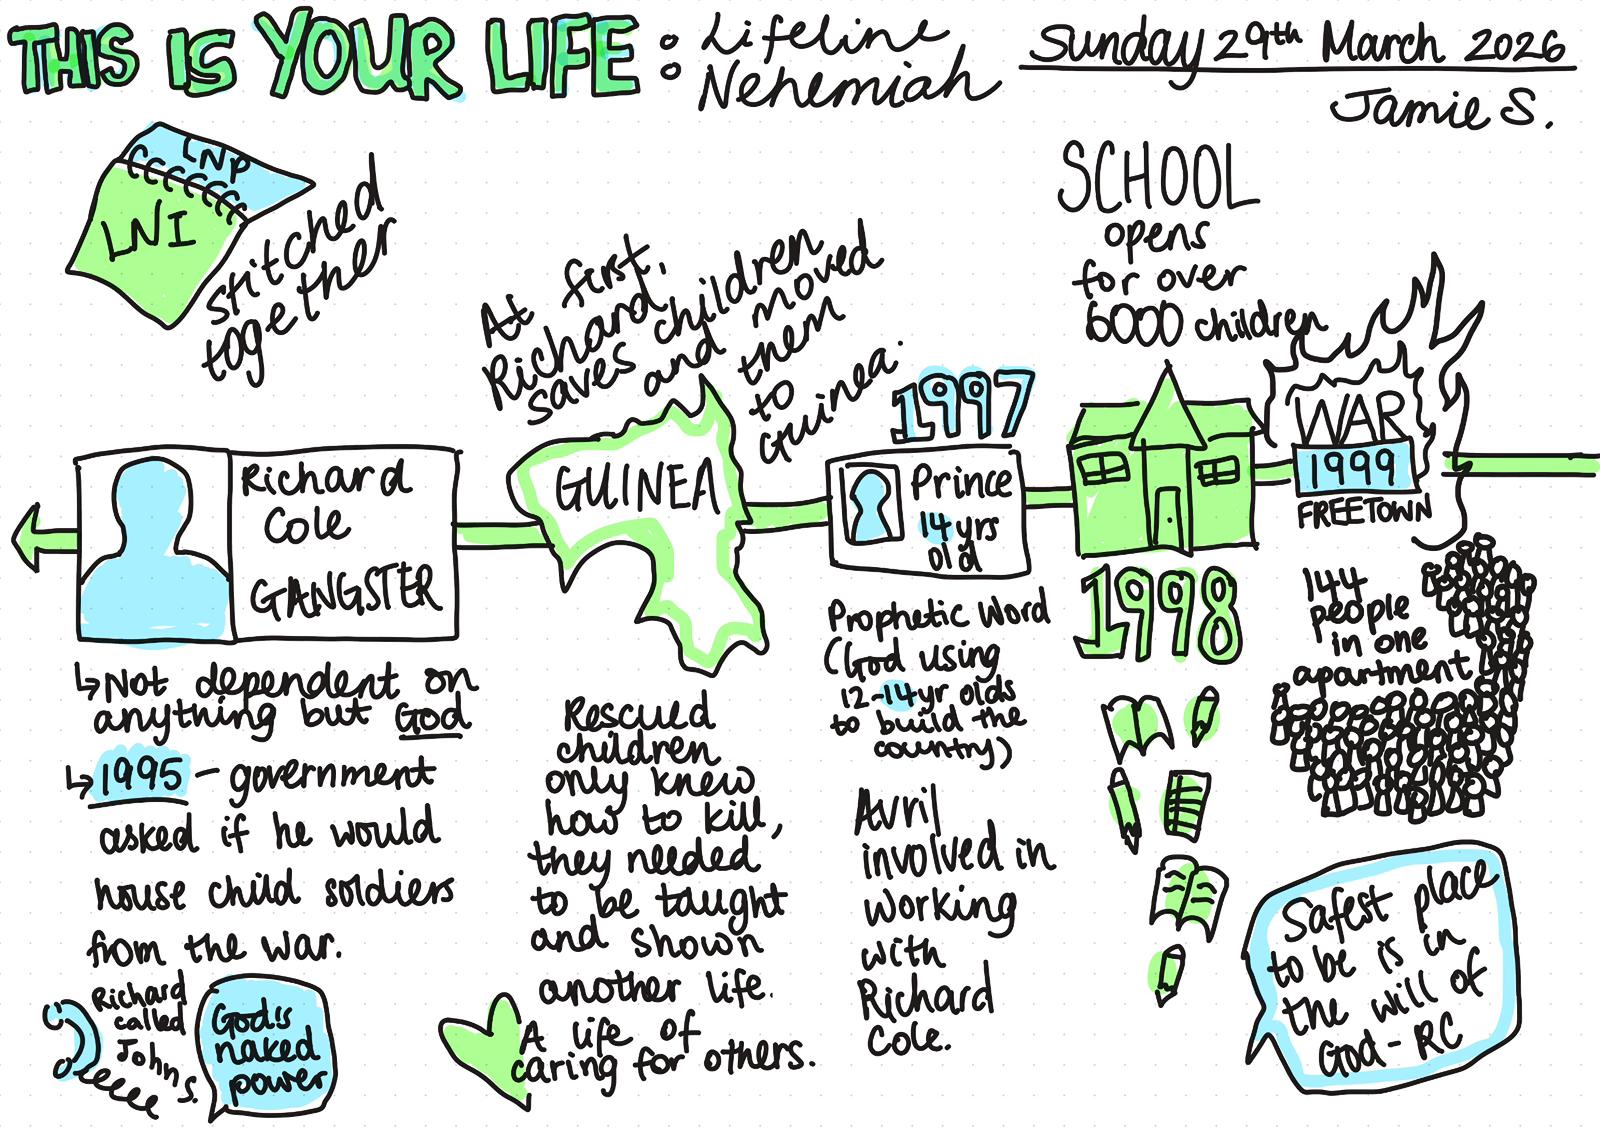 THIS IS YOUR LIFE : Lifeline
Nehemiah
Sunday 29th March 2026
Jamie S.
LNP
LNI
stitched
together
At first,
Richard
saves children
and moved
them
to
Guinea.
SCHOOL
opens
for over
6000 children
Richard
Cole
GANGSTER
GUINEA
1997
Prince
14 yrs
old
WAR
1999
FREETOWN
↳ Not dependent on
anything but God
↳ 1995 - government
asked if he would
house child soldiers
from the war.
Richard
called
John S.
God's
naked
power
Rescued
children
only knew
how to kill,
they needed
to be taught
and shown
another life.
A life of
caring for others.
Prophetic Word
(God using
12-14yr olds
to build the
country)
Avril
involved in
working
with
Richard
Cole.
1998
144
people
in one
apartment
Safest place
to be is in
the will of
God - RC